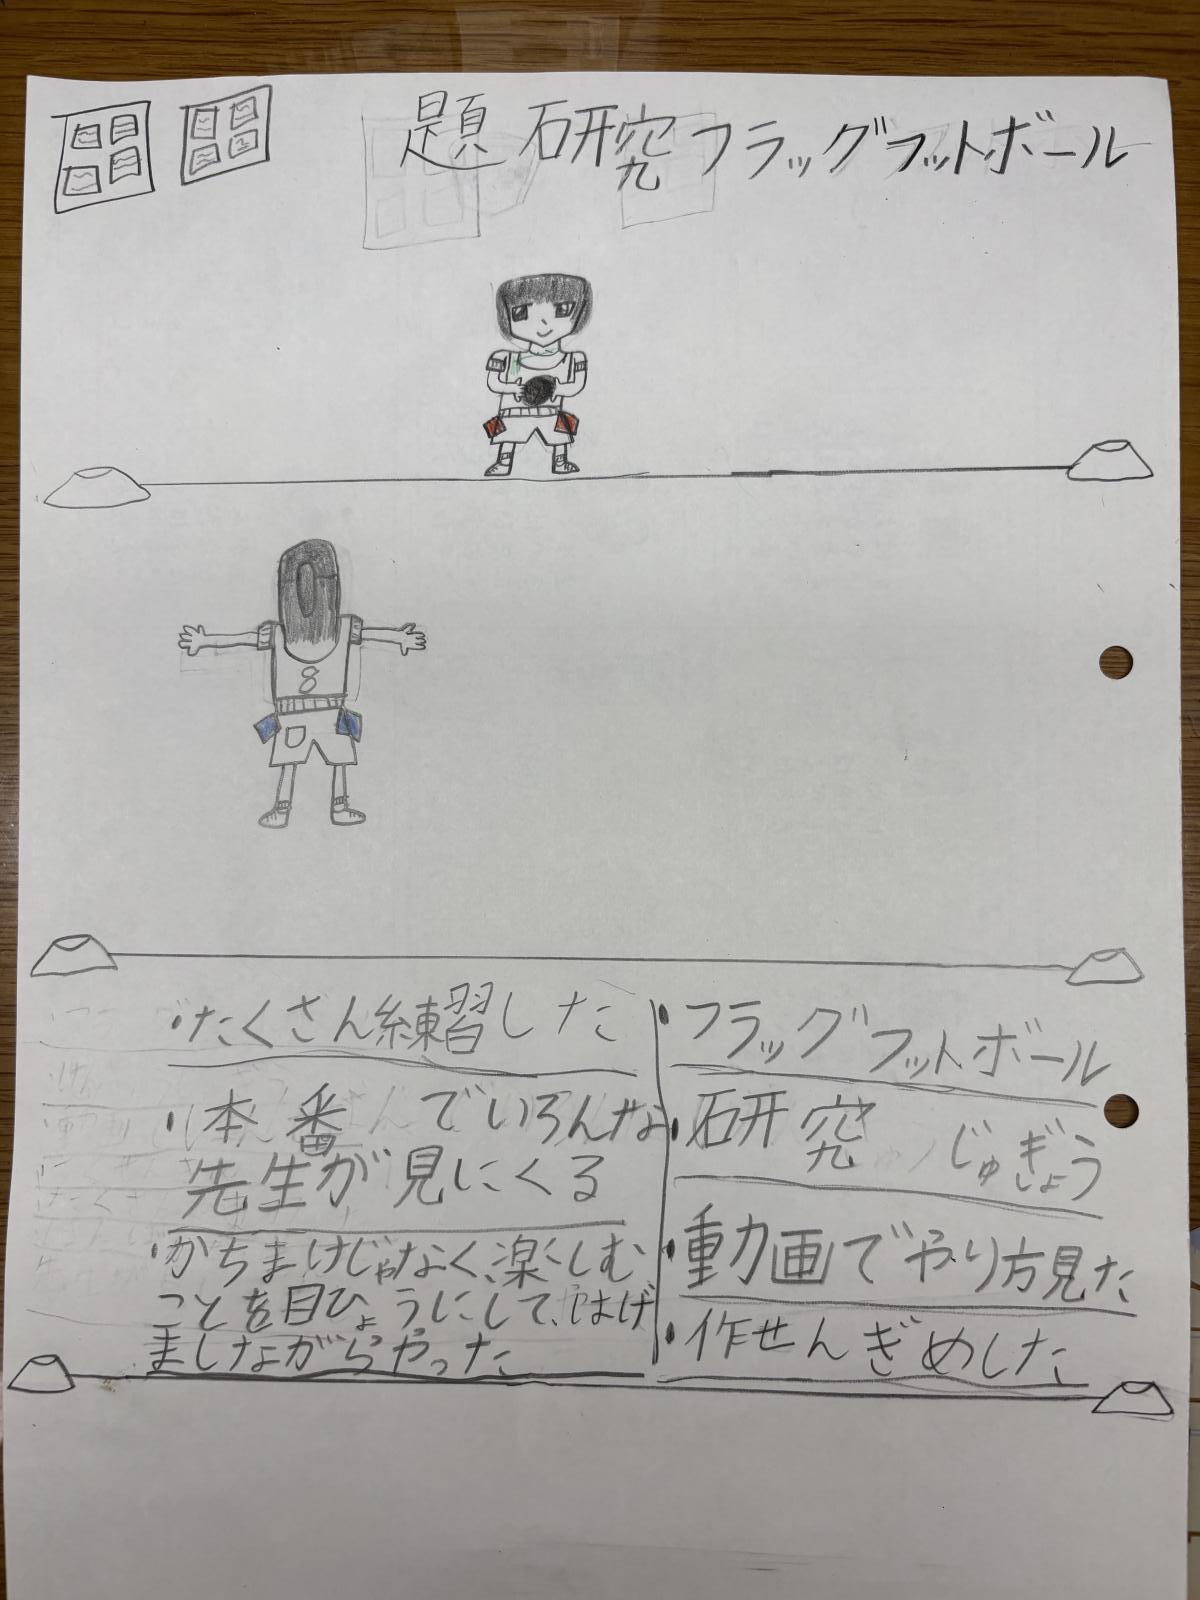 題 研究フラッグフットボール
8
・フラッグフットボール
・研究じゅぎょう
・動画でやり方見た
・作せんぎめした
・たくさん練習した
・本番でいろんな
先生が見にくる
・かちまけじゃなく、楽しむ
ことを目ひょうにして、はげ
ましながらやった